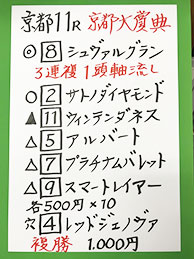 京都11R 京都大賞典
◎ 8 シュヴァルグラン
3連複1頭軸流し
○ 2 サトノダイヤモンド
▲ 11 ウィンテンダネス
△ 5 アルバート
△ 7 プラチナムバレット
△ 9 スマートレイアー
各500円×10
穴 4 レッドジェノヴァ
複勝 1,000円